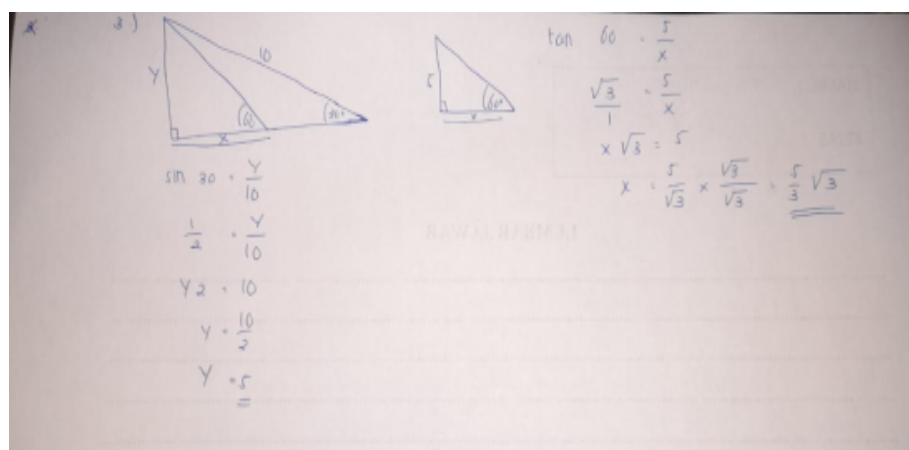 3)
10
Y
60
30°
x
sin 30 = Y/10
1/2 = Y/10
Y2 = 10
Y = 10/2
Y = 5
5
60°
x
tan 60 = 5/x
√3/1 = 5/x
x√3 = 5
x = 5/√3 × √3/√3 = 5/3 √3
LEMBAR JAWAB